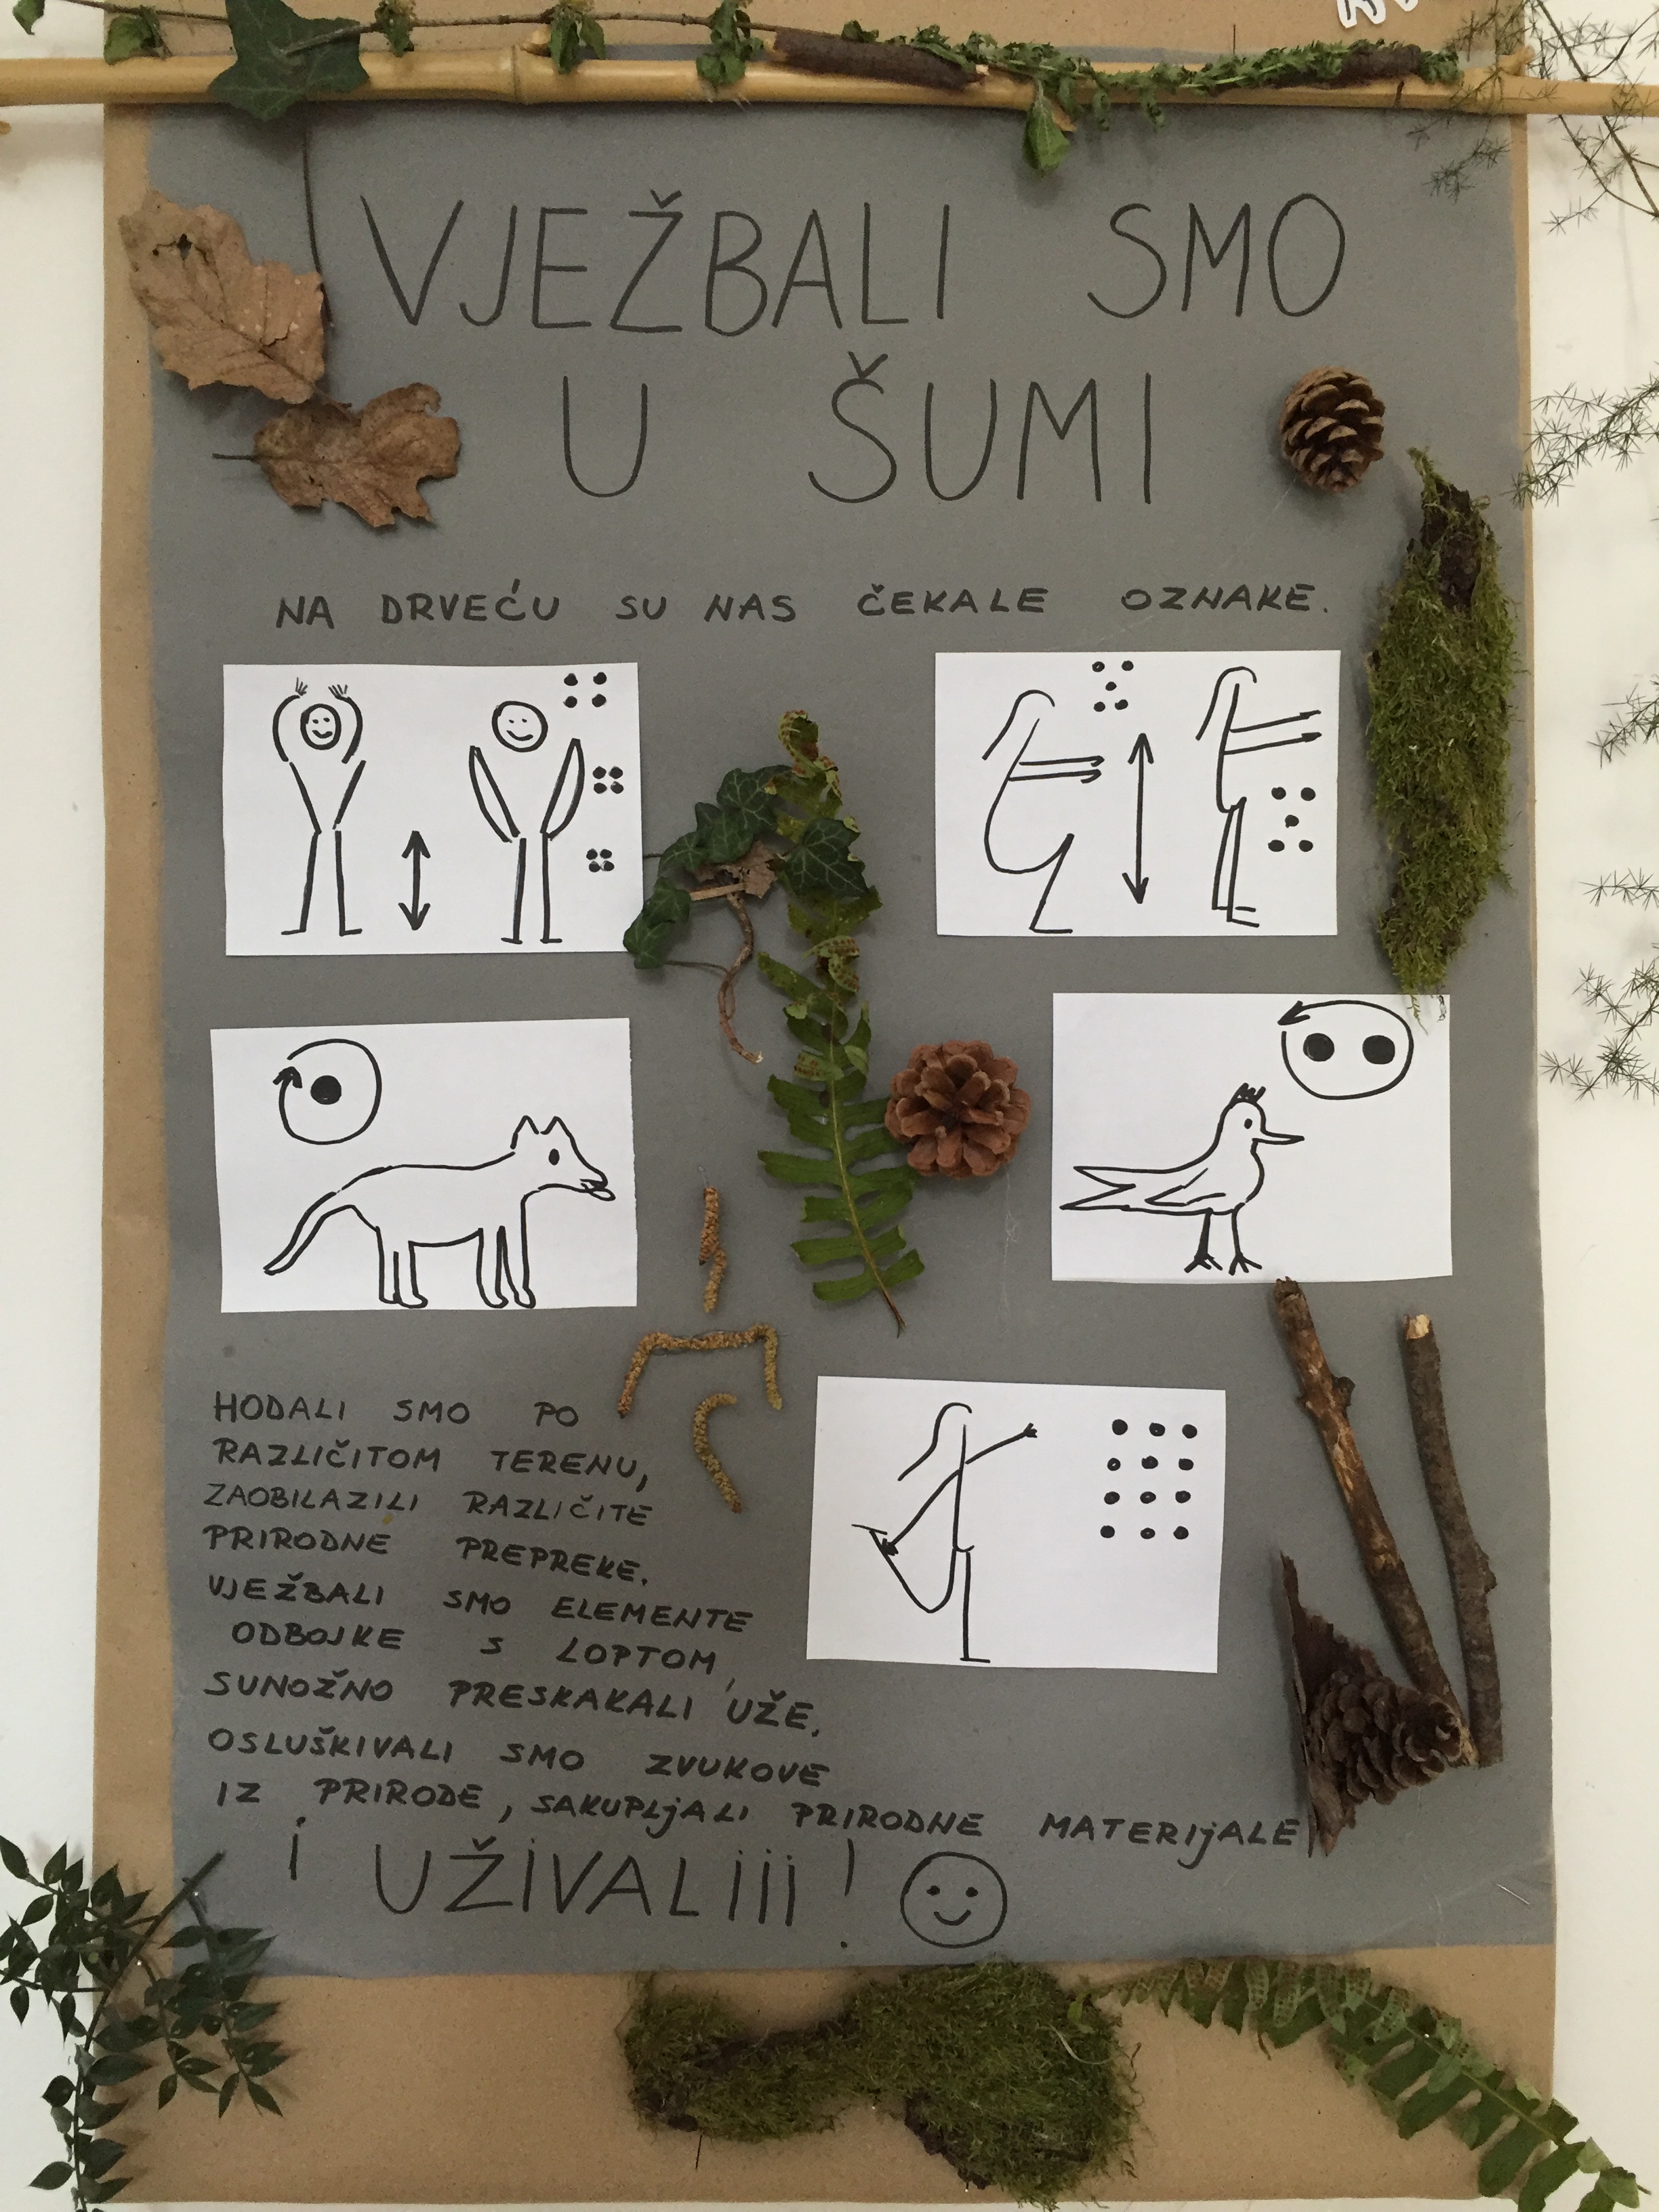 VJEŽBALI SMO
U ŠUMI
NA DRVEĆU SU NAS ČEKALE OZNAKE.
HODALI SMO PO
RAZLIČITOM TERENU,
ZAOBILAZILI RAZLIČITE
PRIRODNE PREPREKE.
VJEŽBALI SMO ELEMENTE
ODBOJKE S LOPTOM,
SUNOŽNO PRESKAKALI UŽE.
OSLUŠKIVALI SMO ZVUKOVE
IZ PRIRODE, SAKUPLjALI PRIRODNE MATERIjALE
i UŽiVALiii!